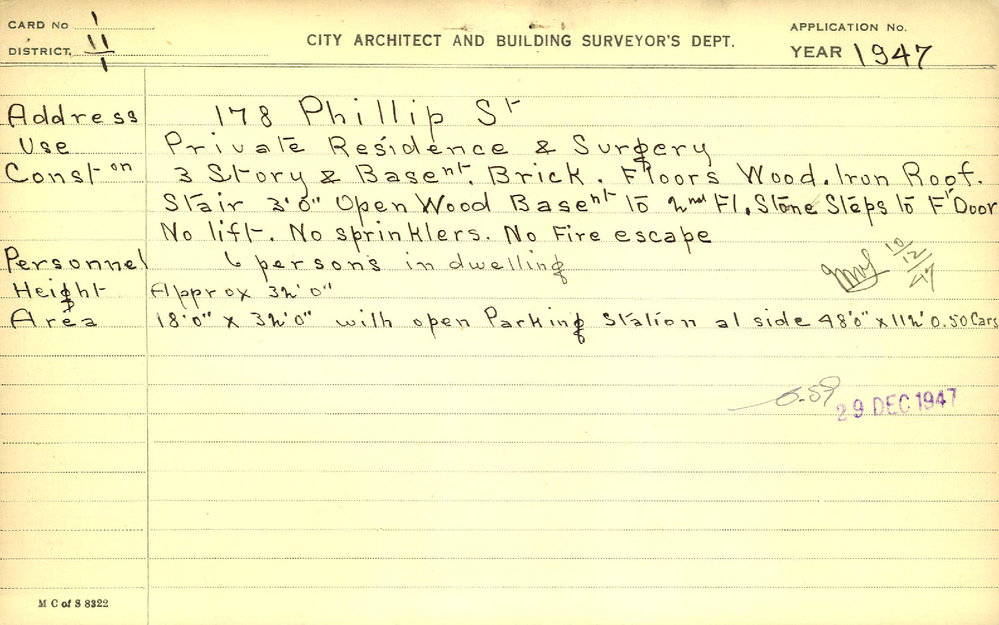 CARD No 1
DISTRICT. 11/1
CITY ARCHITECT AND BUILDING SURVEYOR'S DEPT.
APPLICATION No.
YEAR 1947
Address 178 Phillip St
Use Private Residence & Surgery
Conston 3 Story & Basent. Brick. Floors Wood. Iron Roof.
Stair 3'0" Open Wood Basent to 2nd Fl. Stone Steps to Ft Door
No lift. No sprinklers. No Fire escape
Personnel 6 persons in dwelling
10/12/47
Height Approx 32'0"
Area 18'0" x 32'0" with open Parking Station at side 48'0" x 112'0. 50 Cars
29 DEC 1947
M C of S 8322